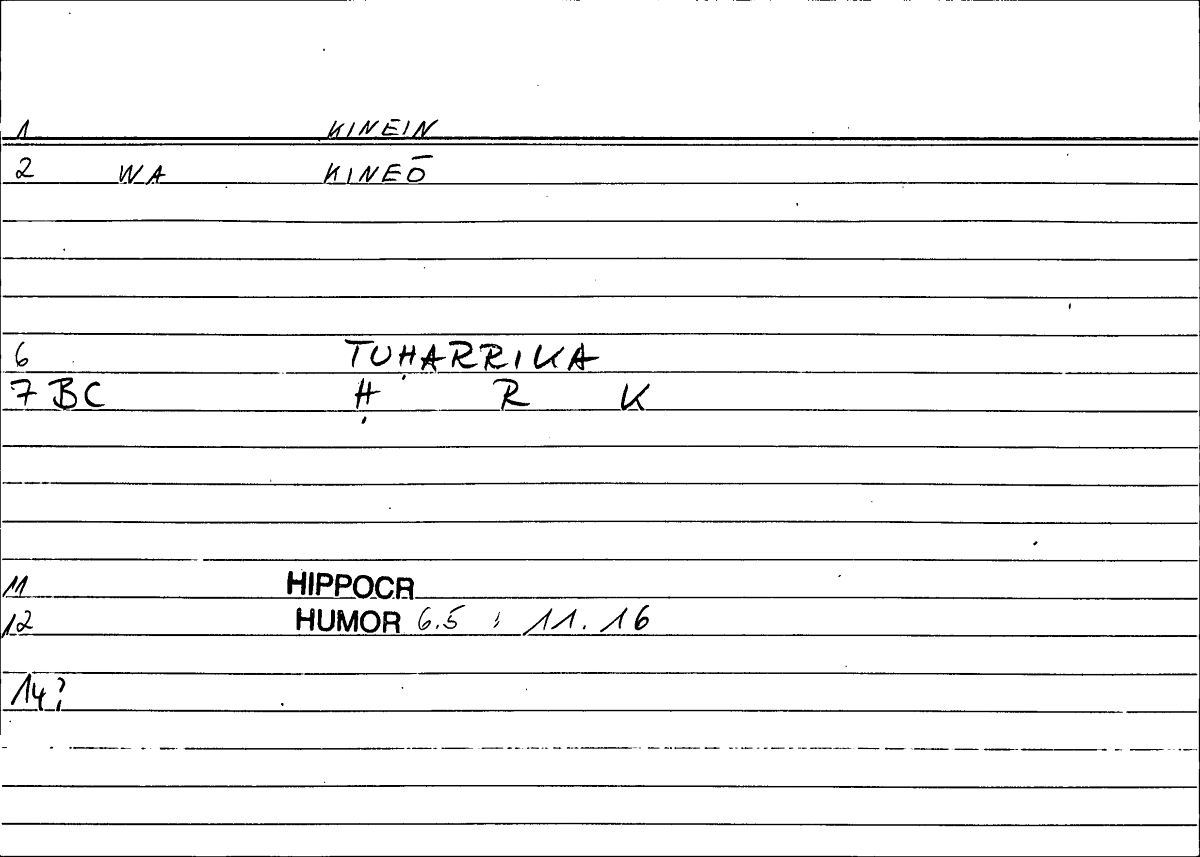 1 KINEIN
2 WA KINEŌ
6 TUḤARRIKA
7 BC Ḥ R K
11 HIPPOCR
12 HUMOR 6.5 ; 11.16
14?